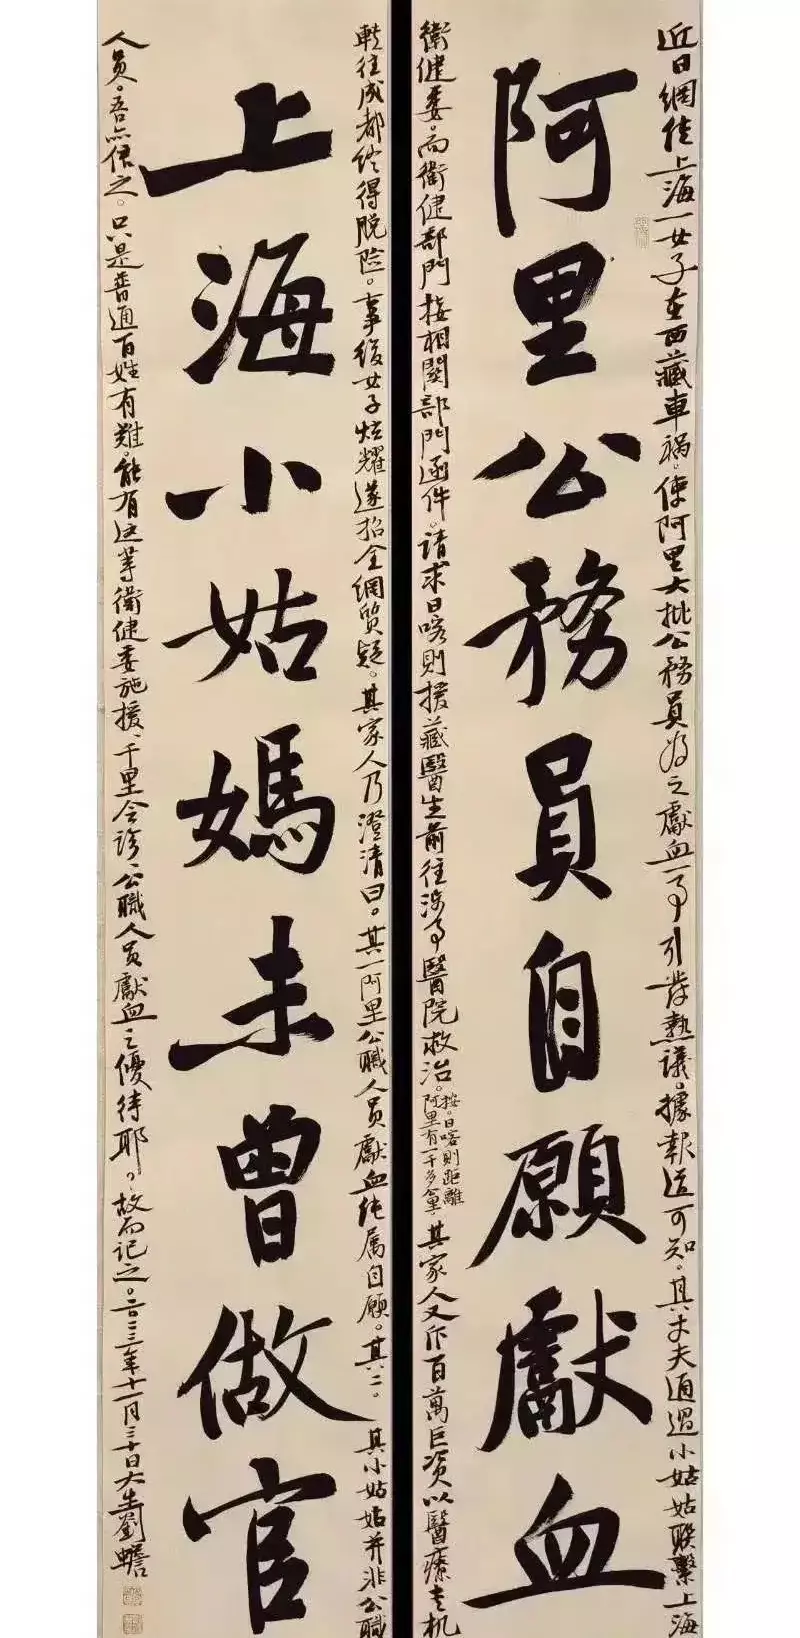 阿里公務員自願獻血
近日網傳上海一女子在西藏車禍。使阿里大批公務員為之獻血一事引發熱議。據報道可知。其丈夫通過小姑姑聯繫上海
衛健委。而衛健部門按相關部門函件。請求日喀則援藏醫生前往涉事醫院救治。
按。日喀則距離
阿里有一千多公里。
其家人又斥百萬巨資以醫療專机
上海小姑媽未曾做官
轉往成都終得脫险。事後女子炫耀遂招全網質疑。其家人乃澄清曰。其一阿里公職人員獻血純属自願。其二。其小姑姑并非公職
人員。吾亦信之。只是普通百姓有難。能有这等衛健委施援、千里会診、公職人員獻血之優待耶。故而記之。二〇二三年十一月三十日大生劉蟾